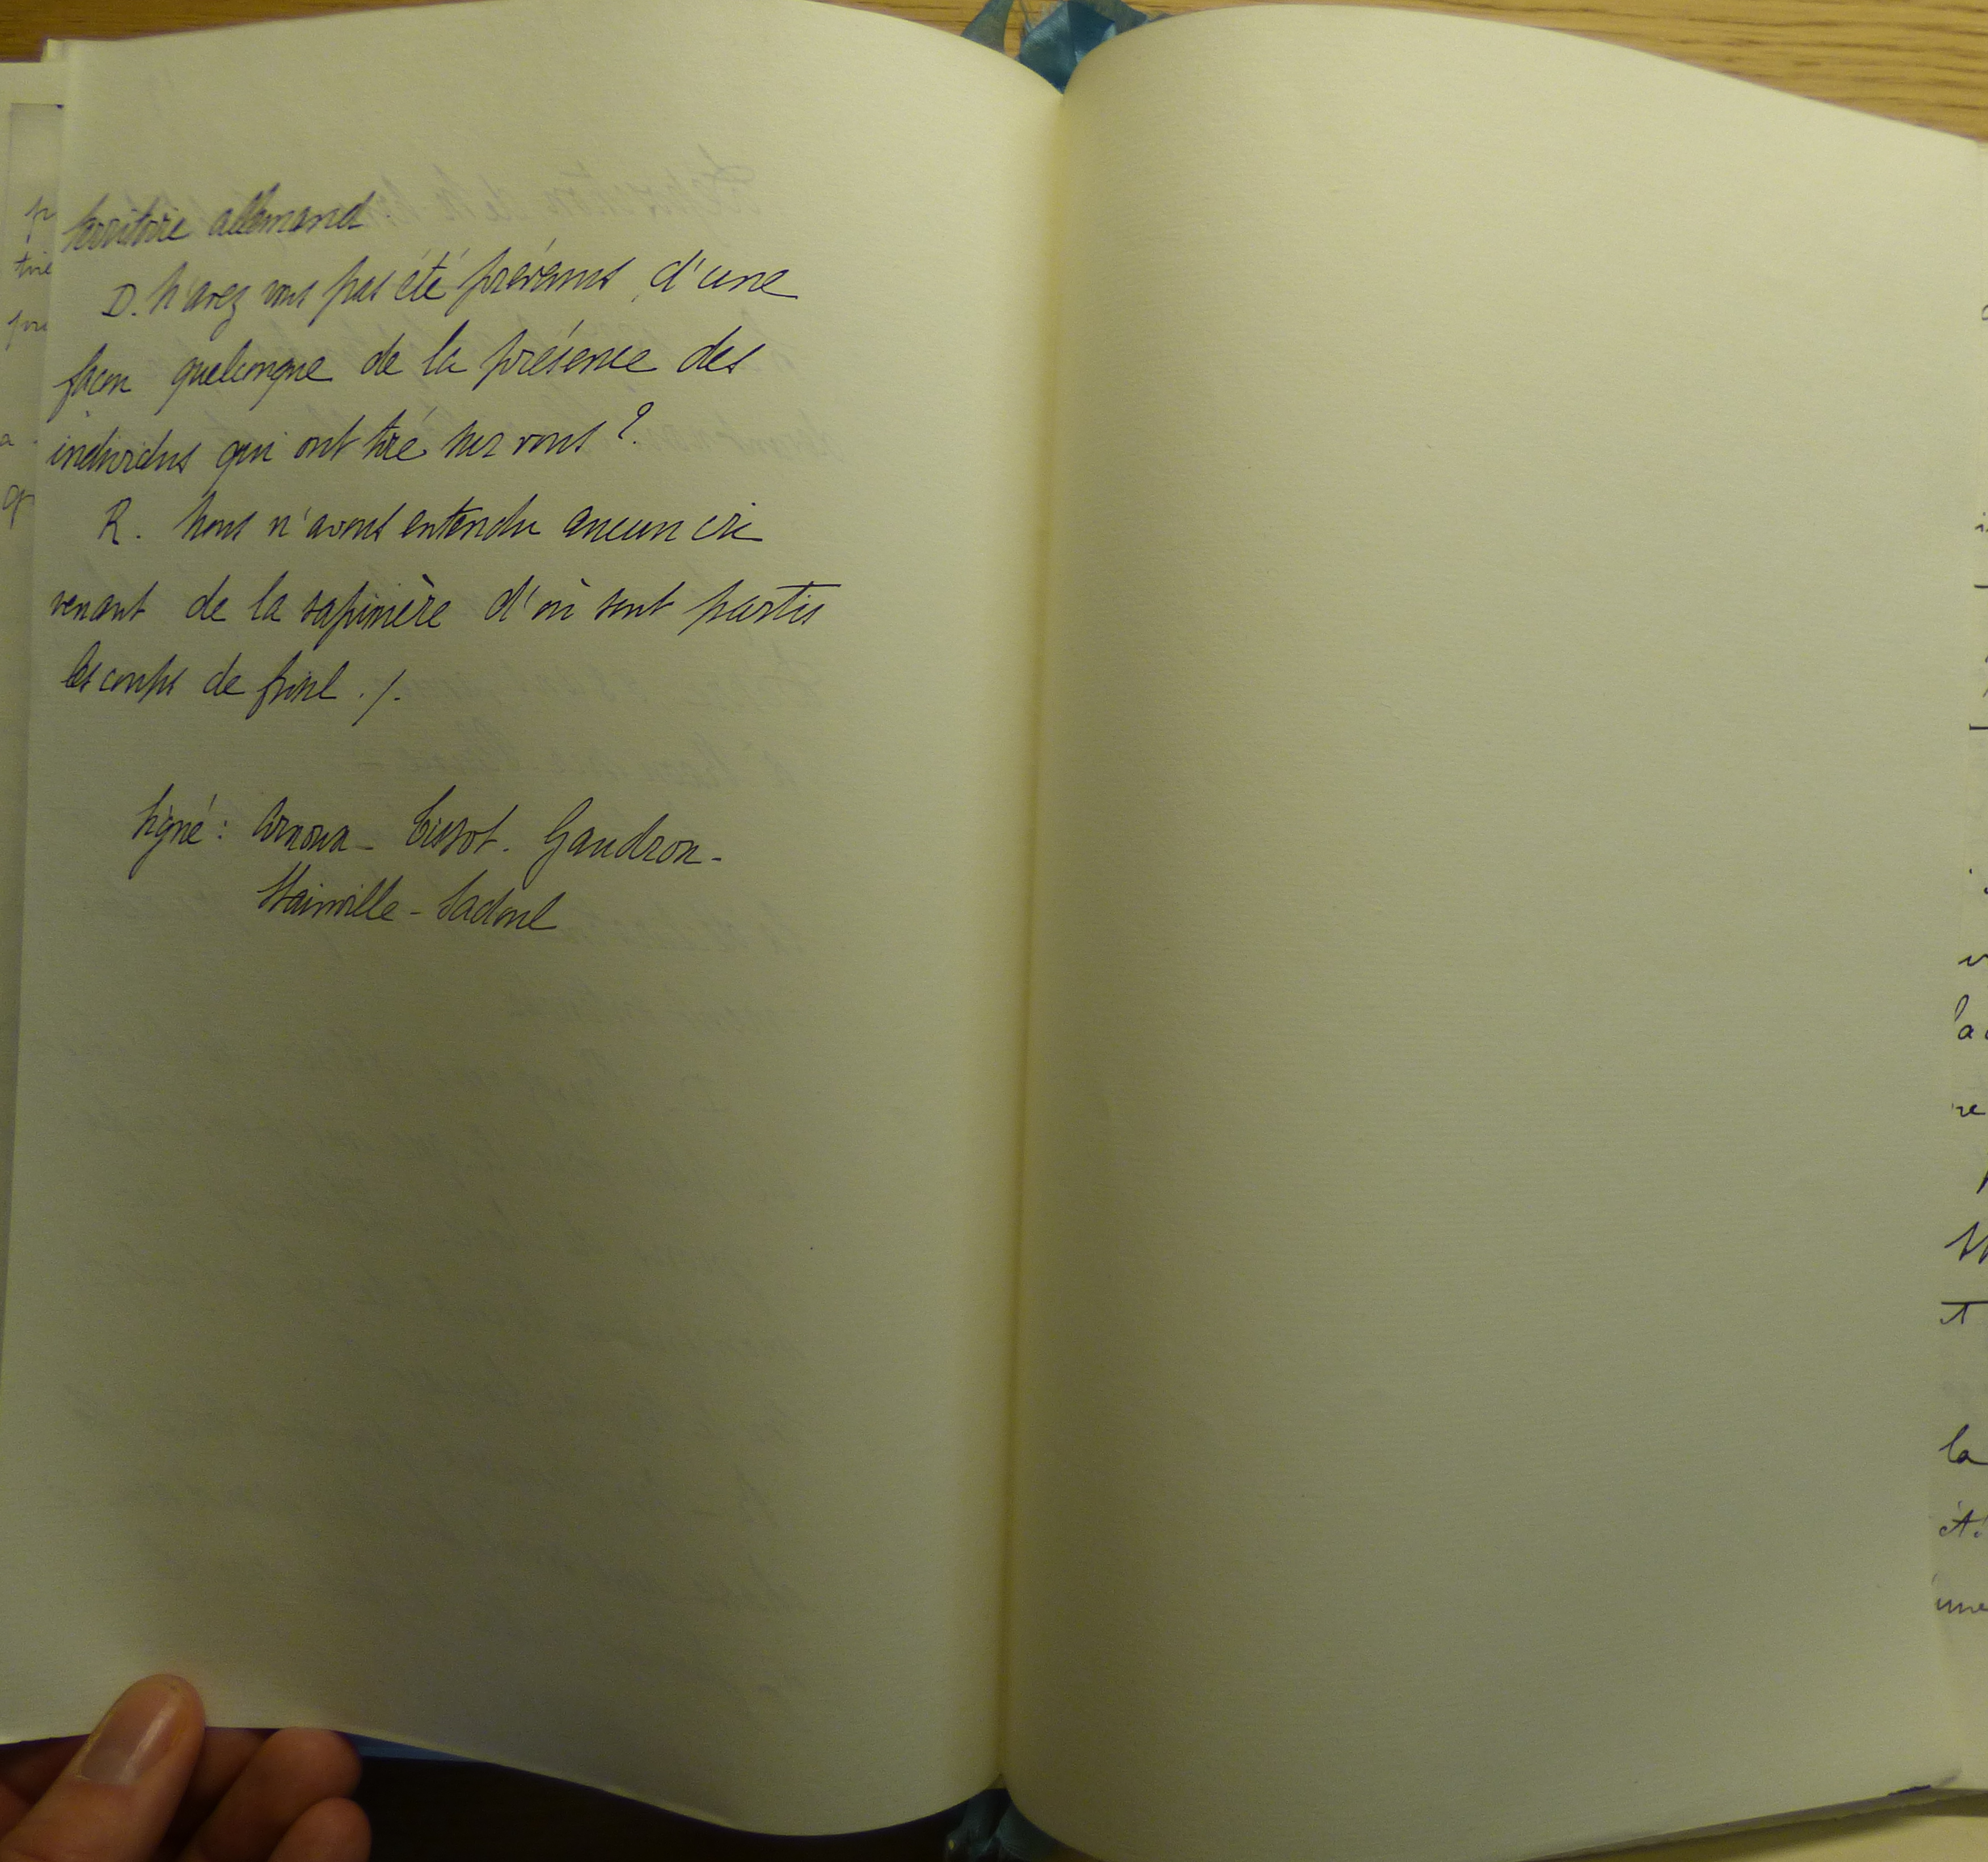 territoire allemand.
D. N'avez vous pas été prévenus d'une
façon quelconque de la présence des
individus qui ont tiré sur vous ?
R. Nous n'avons entendu aucun cri
venant de la sapinière d'où sont partis
les coups de fusil ./.
Signé : Arnoux - Tissot - Gaudron -
Wainville - Sadoul